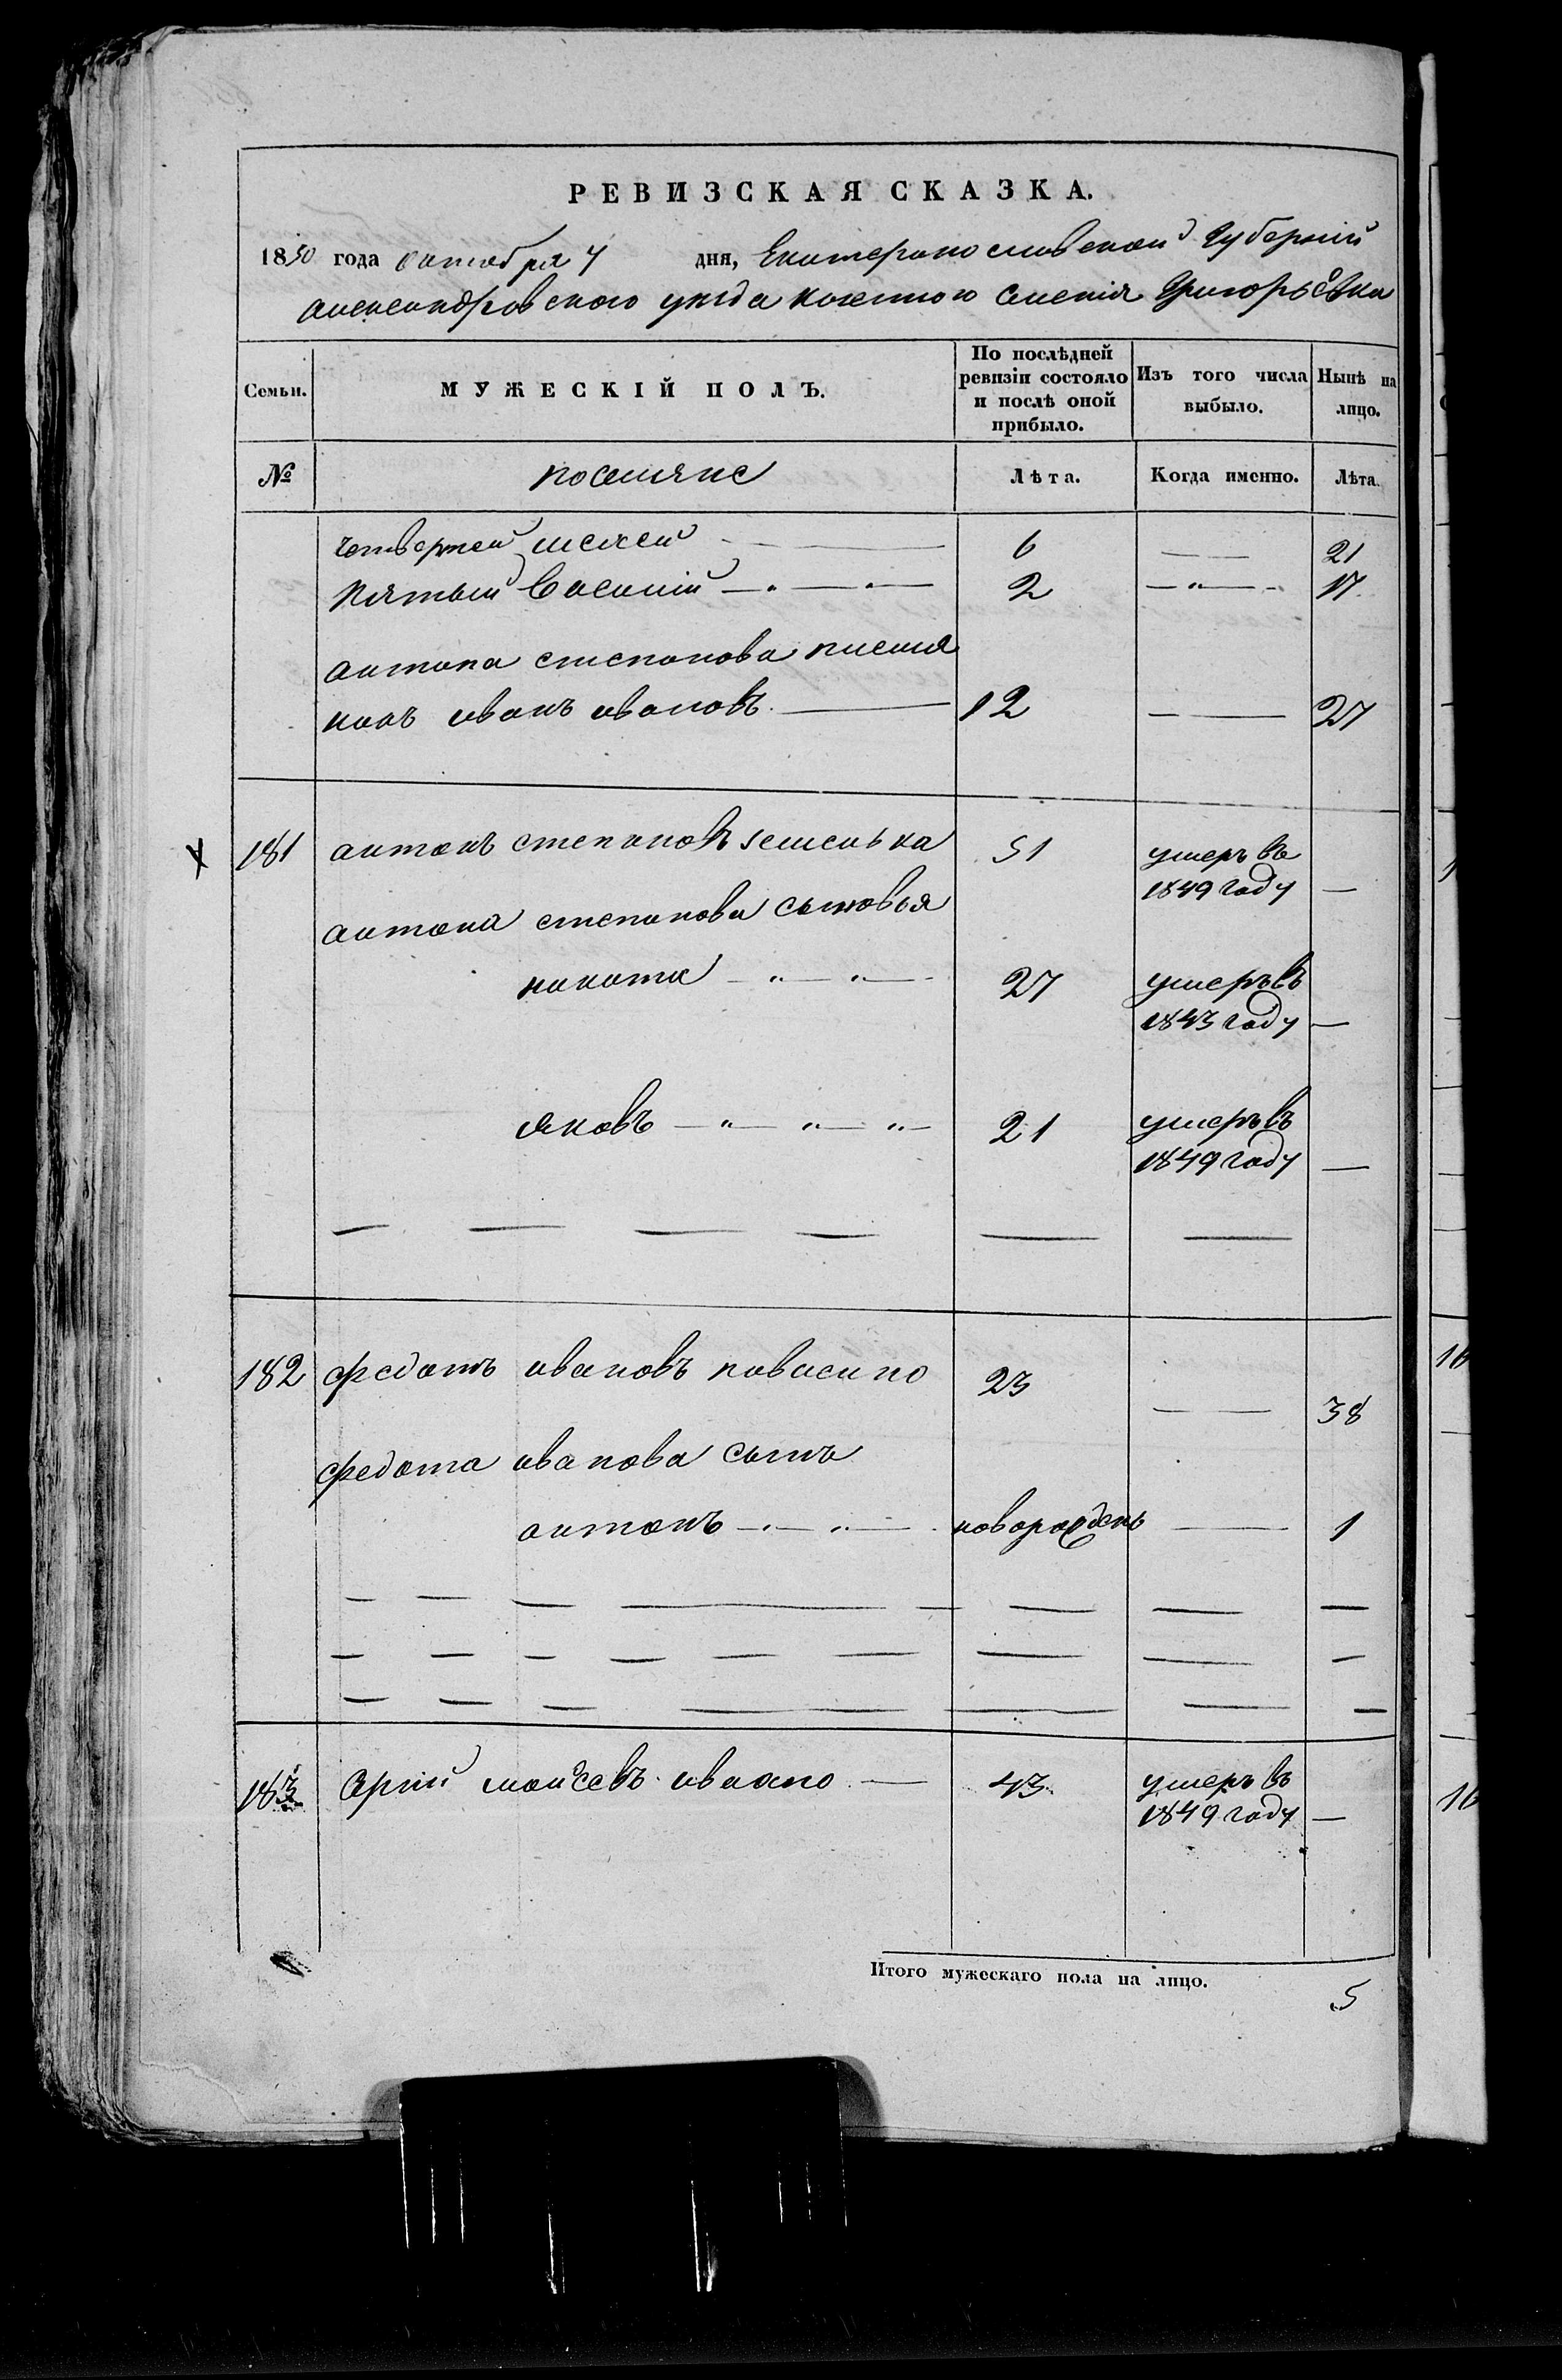 РЕВИЗСКАЯ СКАЗКА.
1850 года октября 7 дня, Екатеринославской Губернии
александровского уезда казенного селения Григорьевка
Семьи. МУЖЕСКІЙ ПОЛЪ. По послѣдней ревизіи состояло и послѣ оной прибыло. Изъ того числа выбыло. Нынѣ на лицо.
№ поселяне Лѣта. Когда именно. Лѣта.
четвертей 6 — 21
пятый Василий 2 — 17
антона степанова племя
никъ иванъ ивановъ 12 — 27
181 антонъ степановъ 51 умеръ въ
1849 году —
антона степанова сыновья
никита 27 умеръ въ
1843 году —
яковъ 21 умеръ въ
1849 году —
182 федотъ ивановъ 23 — 38
федота иванова сынъ
антонъ новорожденъ — 1
183 43 умеръ въ
1849 году —
Итого мужескаго пола на лицо. 5